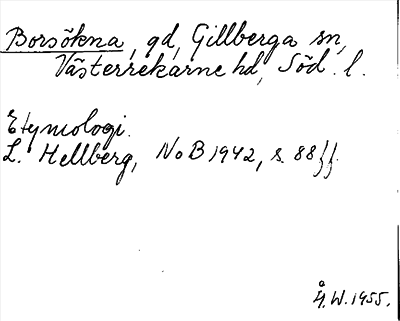 Borsökna, gd, Gillberga sn,
Västerrekarne hd, Söd. l.
Etymologi.
L. Hellberg, NoB 1942, s. 88 ff.
Å.W. 1955.